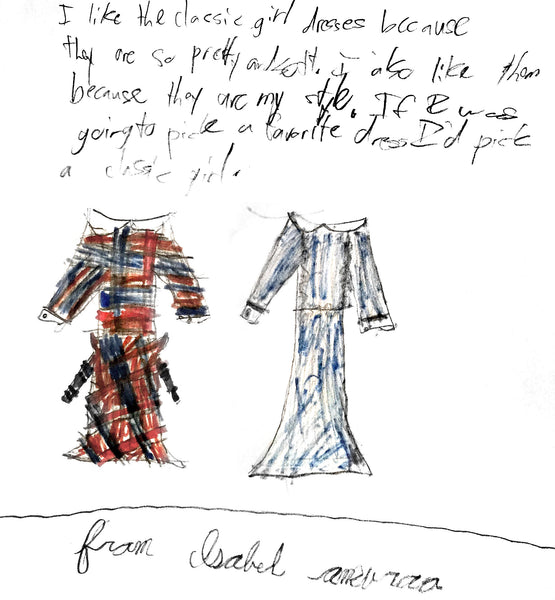 I like the classic girl dresses because
they are so pretty and soft. I also like them
because they are my style. If I was
going to pick a favorite dress I'd pick
a classic girl.
from Isabel